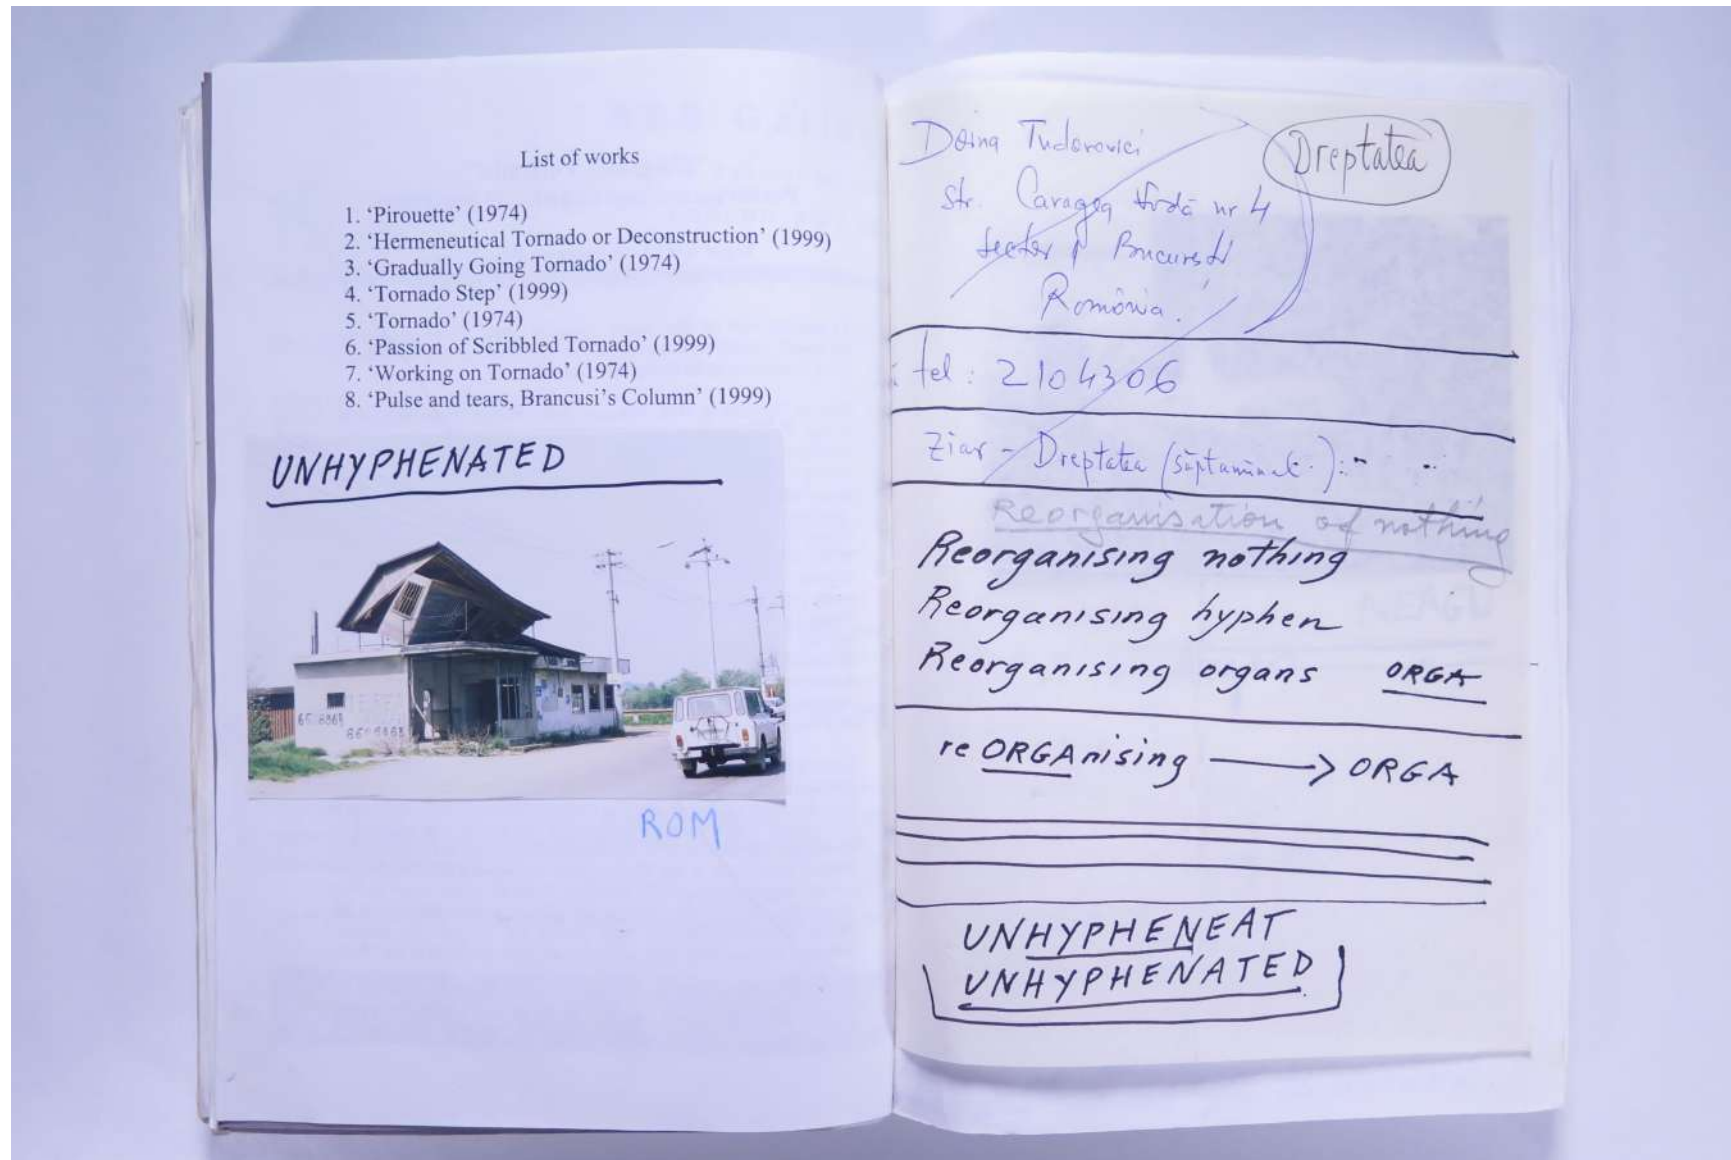 List of works
1. ‘Pirouette’ (1974)
2. ‘Hermeneutical Tornado or Deconstruction’ (1999)
3. ‘Gradually Going Tornado’ (1974)
4. ‘Tornado Step’ (1999)
5. ‘Tornado’ (1974)
6. ‘Passion of Scribbled Tornado’ (1999)
7. ‘Working on Tornado’ (1974)
8. ‘Pulse and tears, Brancusi’s Column’ (1999)
UNHYPHENATED
ROM
Doina Tudorovici
Dreptatea
str. Caragea Vodă nr 4
sector 1 București
România.
tel: 2104306
Ziar - Dreptatea (săptaminal.):
Reorganisation of nothing
Reorganising nothing
Reorganising hyphen
Reorganising organs ORGA
reORGAnising → ORGA
UNHYPHENEAT
UNHYPHENATED